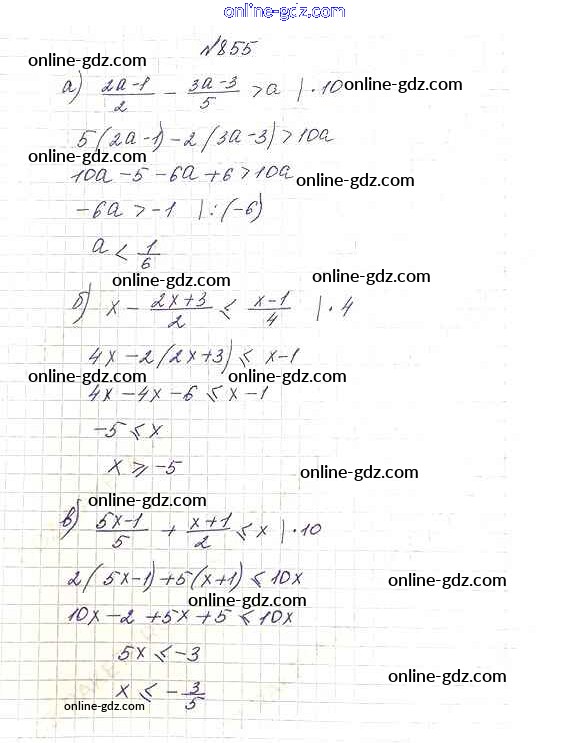 online-gdz.com
№855
online-gdz.com
а) (2a-1)/2 - (3a-3)/5 > a |·10 online-gdz.com
5(2a-1)-2(3a-3)>10a
online-gdz.com
10a-5-6a+6>10a online-gdz.com
-6a>-1 |:(-6)
a < 1/6
online-gdz.com online-gdz.com
б) x - (2x+3)/2 ⩽ (x-1)/4 |·4
4x-2(2x+3)⩽ x-1
online-gdz.com online-gdz.com
4x-4x-6⩽x-1
-5⩽x
x⩾-5 online-gdz.com
online-gdz.com
в) (5x-1)/5 + (x+1)/2 ⩽ x |·10
2(5x-1)+5(x+1)⩽10x online-gdz.com
online-gdz.com
10x-2+5x+5⩽10x
5x⩽-3
online-gdz.com
x ⩽ -3/5
online-gdz.com